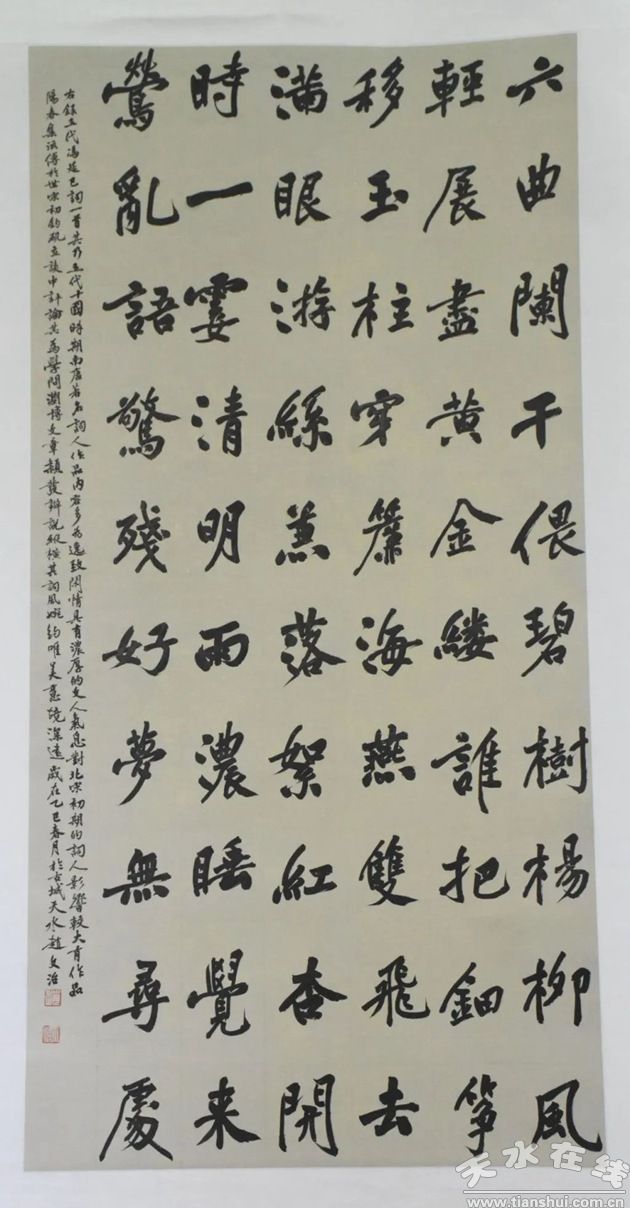 六曲闌干偎碧樹楊柳風
輕展盡黃金縷誰把鈿筝
移玉柱穿簾海燕雙飛去
滿眼游絲兼落絮紅杏開
時一霎清明雨濃睡覺来
鶯亂語驚殘好夢無尋處
右錄五代馮延巳詞一首其乃五代十國時期南唐著名詞人作品内容多為逸致閑情具有濃厚的文人氣息對北宋初期的詞人影響較大有作品
陽春集流傳於世宋初釣磯立談中評論其為學問淵博文章穎發辯説縱横其詞風婉約唯美意境深遠歲在乙巳春月於古城天水趙文治
天水在线
www.tianshui.com.cn